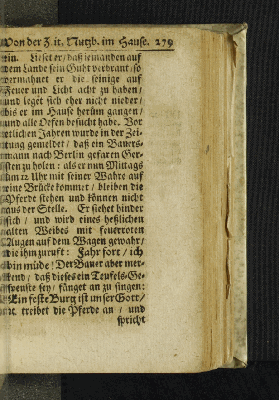 Von der Zeit. Nutzb. im Hause. 279
ein. Lieset er/ daß jemanden auf
dem Lande sein Guht verbrant/ so
vermahnet er die seinige auf
Feuer und Licht acht zu haben/
und leget sich eher nicht nieder/
bis er im Hause herüm gangen/
und alle Oefen besucht habe. Vor
etlichen Jahren wurde in der Zei-
tung gemeldet/ daß ein Bauers-
mann nach Berlin gefaren Ger-
sten zu holen: als er nun Mittags
um 12 Uhr mit seiner Wahre auf
eine Brücke kommet/ bleiben die
Pferde stehen und können nicht
aus der Stelle. Er siehet hinder
sich/ und wird eines heßlichen
alten Weibes mit feuerroten
Augen auf dem Wagen gewahr/
die ihm zuruft: Fahr fort/ ich
bin müde! Der Bauer aber mer-
kend/ daß dieses ein Teufels-Ge-
spenste sey/ fänget an zu singen:
Ein feste Burg ist unser Gott/
rc. treibet die Pferde an/ und
spricht